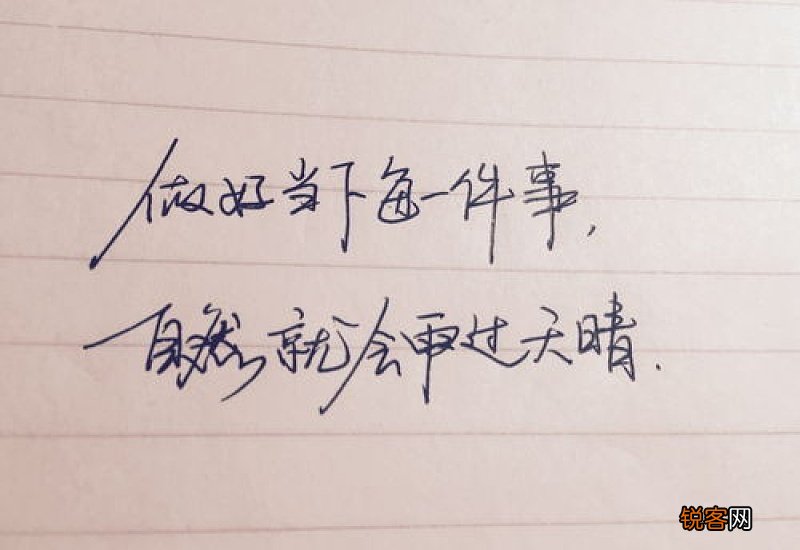 做好当下每一件事,
自然就会雨过天晴.
锐客网